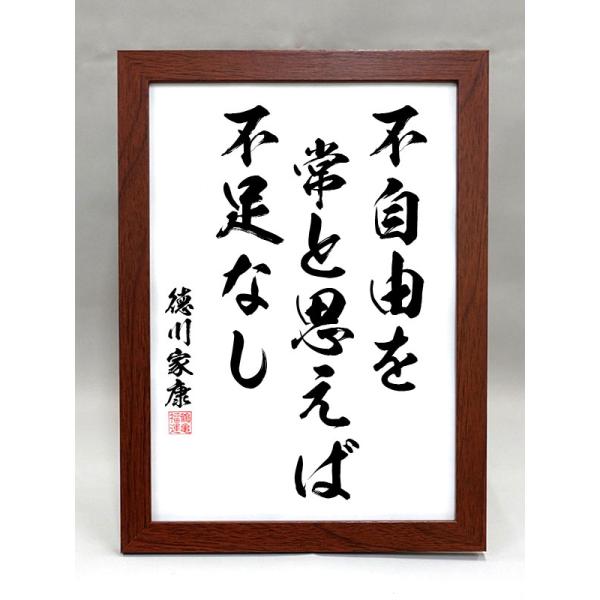 不自由を
常と思えば
不足なし
徳川家康